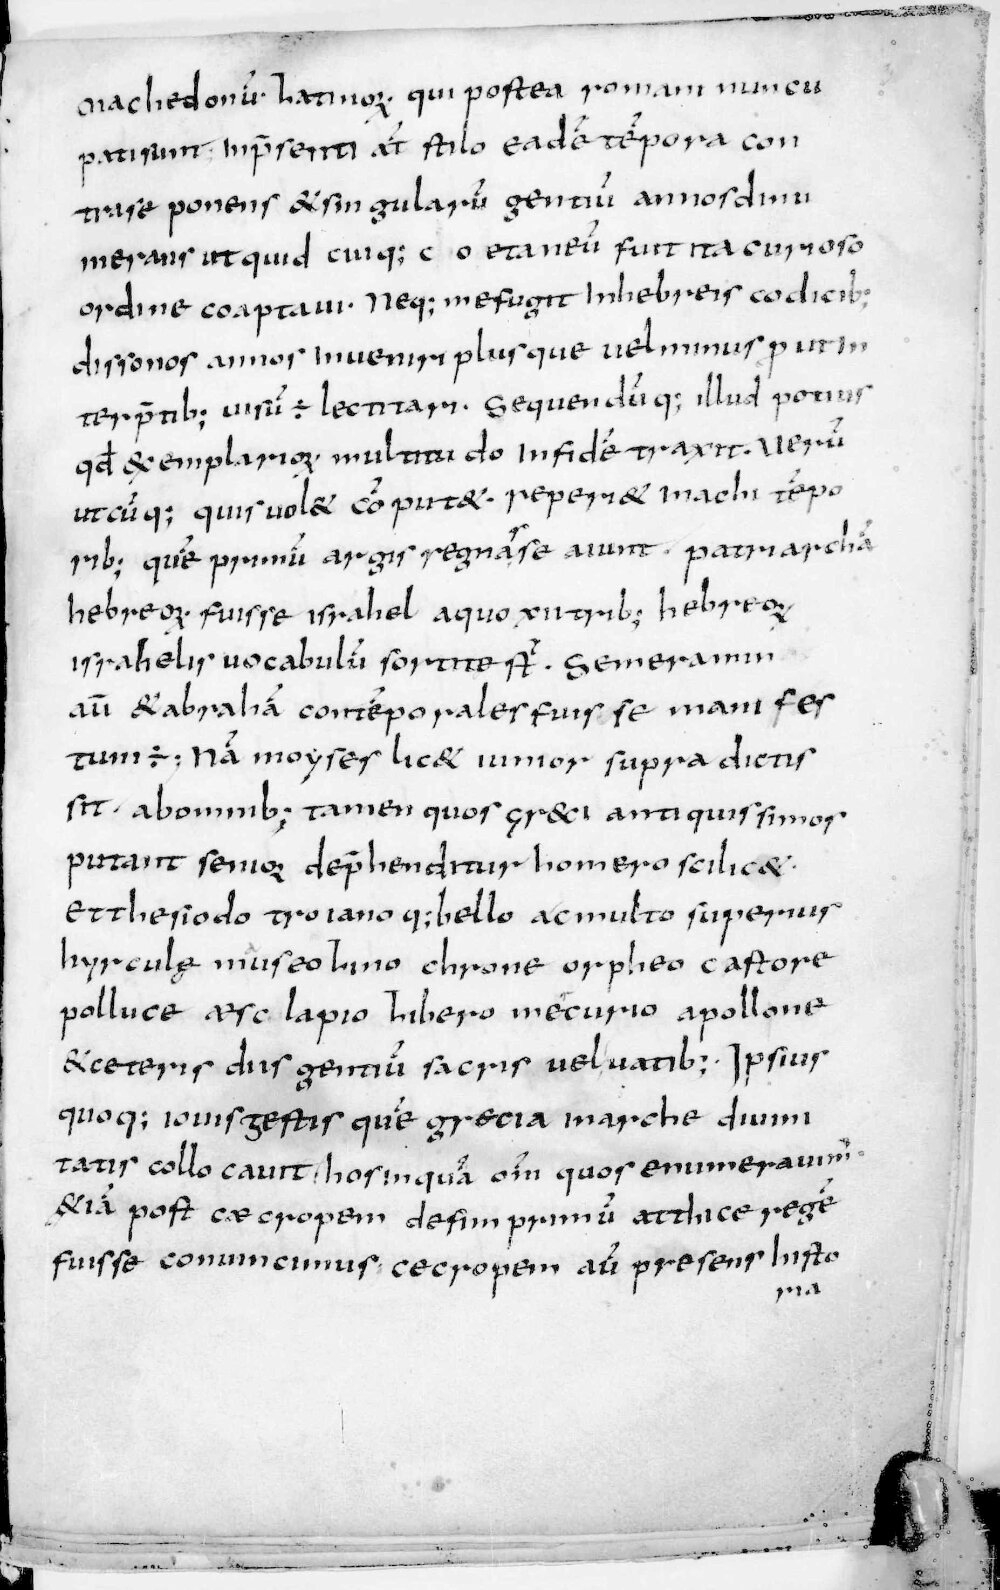 machedonũ· latinoꝝ· qui postea romani nuncu
patisunt· Inp̃senti aũt stilo eadẽ tẽpora con
trase ponens &singularũ gentiũ annosdinu
merans utquid cuiq; c o etaneũ fuit ita curioso
ordine coaptaui· Neq; mefugit Inhebreis codicib;
dissonos annos Inueniri plusque uelminus ꝓ utIn
terp̃tib; uisũ ÷ lectitari· Sequendũq; illud potius
qđ &emplarioꝝ· multitudo Infidẽ traxit· Uerũ
utcũq; quisuol& cõput&· reperi& Inachi tẽpo
rib; quẽ primũ argis regnasse aiunt· patriarchã
hebreoꝝ· fuisse israhel aquo xiitrib; hebreoꝝ
israhelis uocabulũ sortitest̃· Semeramin
aũ &abrahã contẽporalesfuisse mani fes
tum÷; Nã moyses lic& iunior supra dictis
sit· abomnib; tamen quos gr&ci antiquissimos
putant senioꝝ dep̃henditur homero scilic&·
Etthesiodo troianoq;bello acmulto superius
hyrculę museo lino chrone orpheo castore
polluce æsc lapio libero mecurio apollone
&ceteris diis gentiũ sacris veluatib;· Ipsius
quoq; iouisgestis quẽ grecia inarche diuini
tatis collo cauit· hosinquã om̃ quos enumerauim̃·
&iã post cæcropem defimprimũ atthice regẽ
fuisse conuincimus· cecropem aũ presens histo
ria